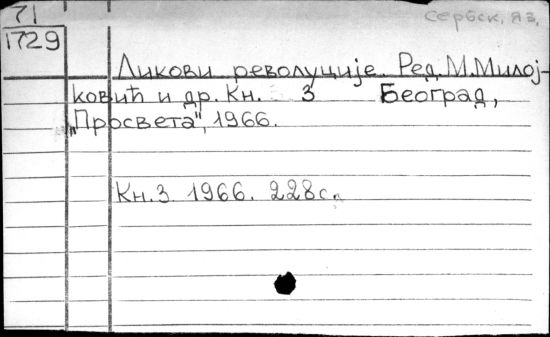 71
1729
Сербск. яз.
Ликови револуције. Ред. М. Милој-
ковић и др. Кн. 3 Београд,
„Просвета", 1966.
Кн. 3. 1966. 228 с.